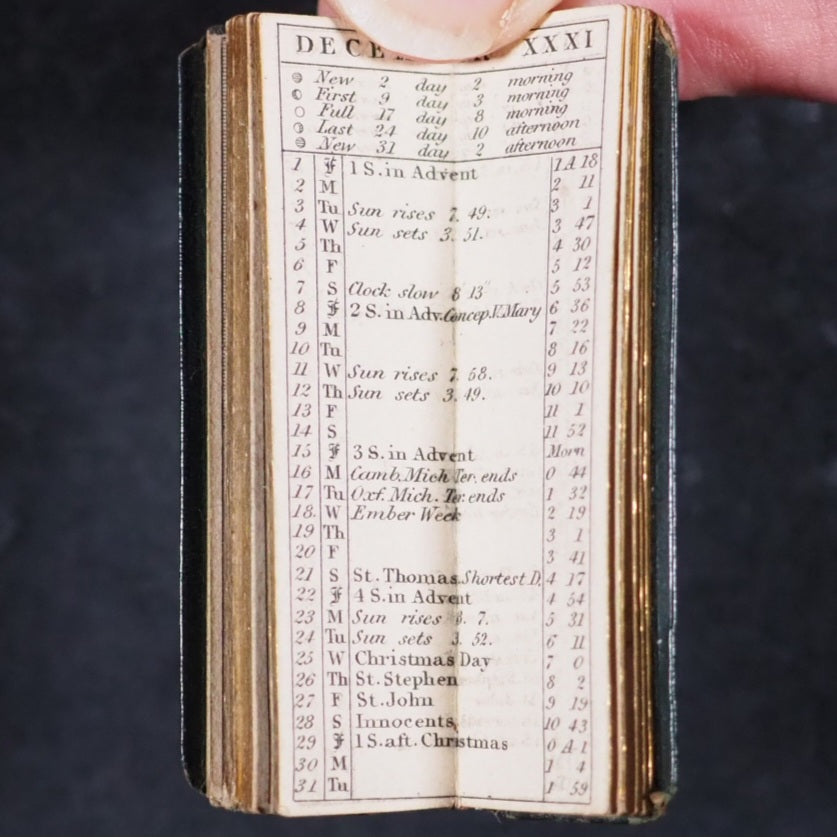 DECE XXXI
New 2 day 2 morning
First 9 day 3 morning
Full 17 day 8 morning
Last 24 day 10 afternoon
New 31 day 2 afternoon
1 F 1 S. in Advent 1 A 18
2 M 2 11
3 Tu Sun rises 7. 49. 3 1
4 W Sun sets 3. 51. 3 47
5 Th 4 30
6 F 5 12
7 S Clock slow 8' 13" 5 53
8 F 2 S. in Adv. Concep. V. Mary 6 36
9 M 7 22
10 Tu 8 16
11 W Sun rises 7. 58. 9 13
12 Th Sun sets 3. 49. 10 10
13 F 11 1
14 S 11 52
15 F 3 S. in Advent Morn
16 M Camb. Mich Ter. ends 0 44
17 Tu Oxf. Mich. Ter. ends 1 32
18. W Ember Week 2 19
19 Th 3 1
20 F 3 41
21 S St. Thomas. Shortest D. 4 17
22 F 4 S. in Advent 4 54
23 M Sun rises 8. 7. 5 31
24 Tu Sun sets 3. 52. 6 11
25 W Christmas Day 7 0
26 Th St. Stephen 8 2
27 F St. John 9 19
28 S Innocents 10 43
29 F 1 S. aft. Christmas 0 A 1
30 M 1 4
31 Tu 1 59